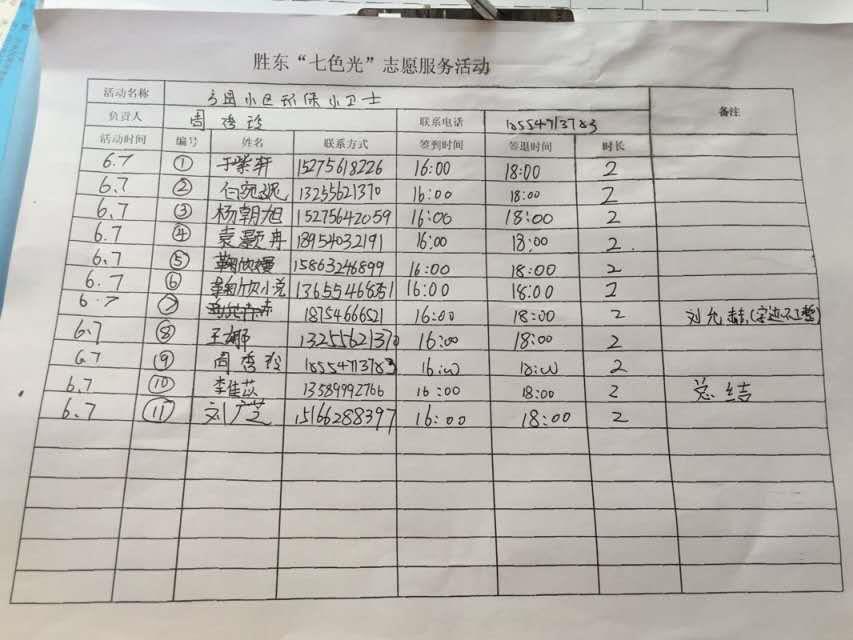 胜东“七色光”志愿服务活动
活动名称 小区环保小卫士 备注
负责人 周秀玲 联系电话 18554713783
活动时间 编号 姓名 联系方式 签到时间 签退时间 时长
6.7 ① 于紫轩 15275618226 16:00 18:00 2
6.7 ② 13255621370 16:00 18:00 2
6.7 ③ 杨朝旭 15275642059 16:00 18:00 2
6.7 ④ 袁灏冉 18954032191 16:00 18:00 2
6.7 ⑤ 15863246899 16:00 18:00 2
6.7 ⑥ 13655468851 16:00 18:00 2
6.7 ⑦ 18754666521 16:00 18:00 2 刘允赫(字迹不工整)
6.7 ⑧ 王娜 13255621370 16:00 18:00 2
6.7 ⑨ 周秀玲 18554713783 16:00 18:00 2
6.7 ⑩ 李佳苡 13589992766 16:00 18:00 2 总结
6.7 ⑪ 刘广芝 15166288397 16:00 18:00 2